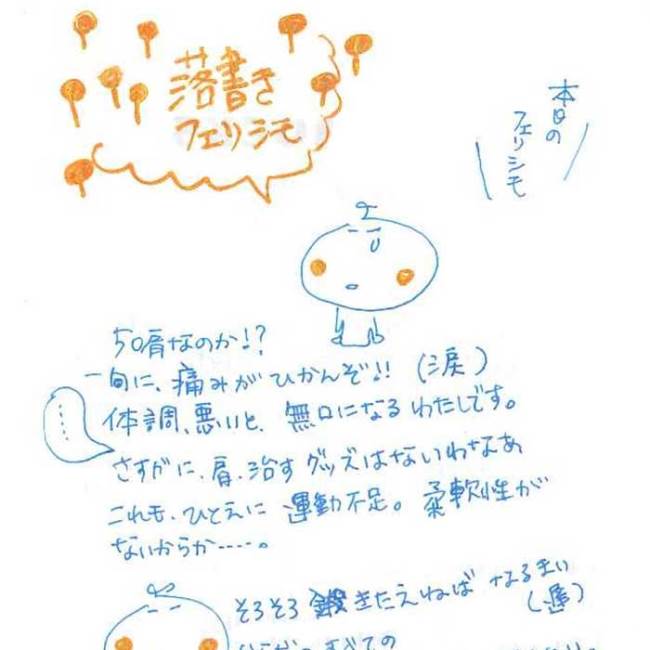 落書き
フェリシモ
本日の
フェリシモ
50肩なのか!?
一向に、痛みがひかんぞ!! (涙)
体調、悪いと、無口になるわたしです。
……
さすがに、肩、治すグッズはないわなあ
これも、ひとえに運動不足。柔軟性が
ないからか……。
そろそろ きたえねば なるまい
(遅)
すべての